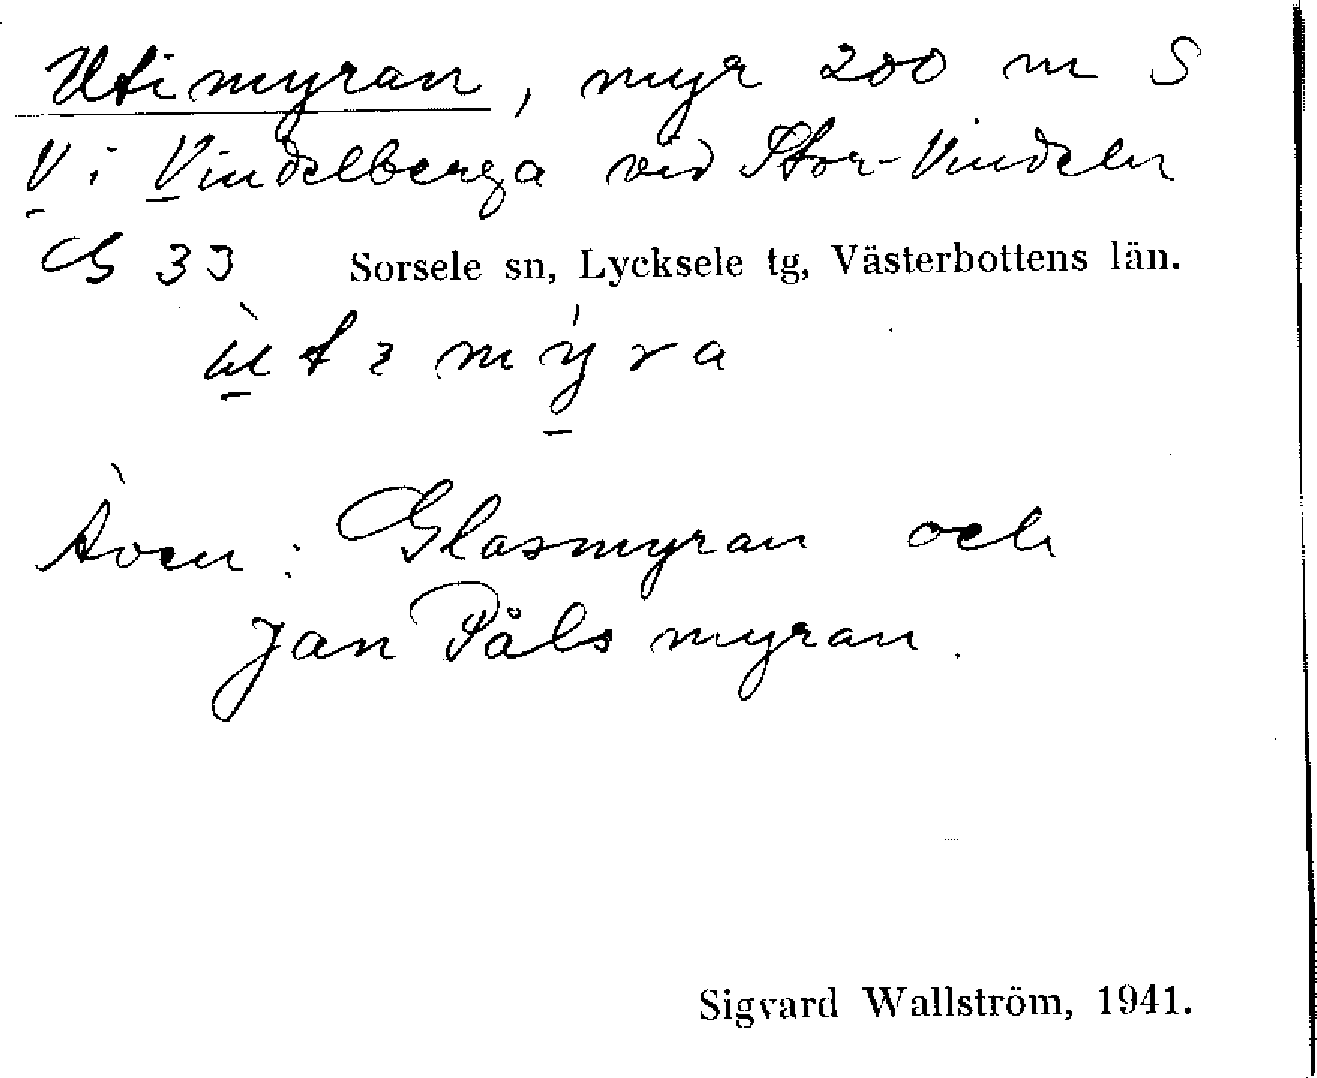 Utimyran, myr 200 m S
V i Vindelberga vid Stor-Vindeln
G 33 Sorsele sn, Lycksele tg, Västerbottens län.
Även: Glasmyran och
Jan Pålsmyran.
Sigvard Wallström, 1941.